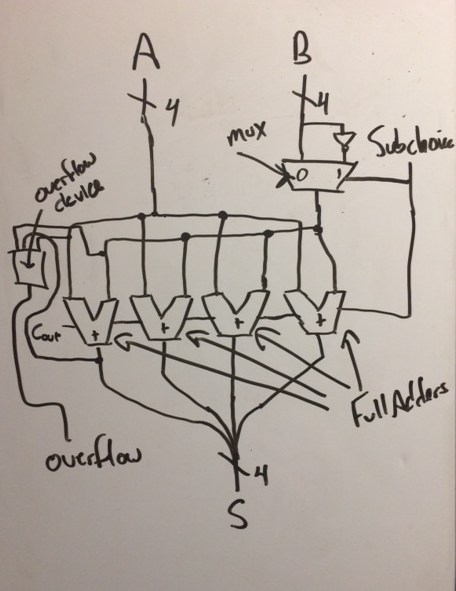 A
B
4
4
mux
Subchoice
0
1
overflow
device
Cout
+
+
+
+
Full Adders
overflow
4
S